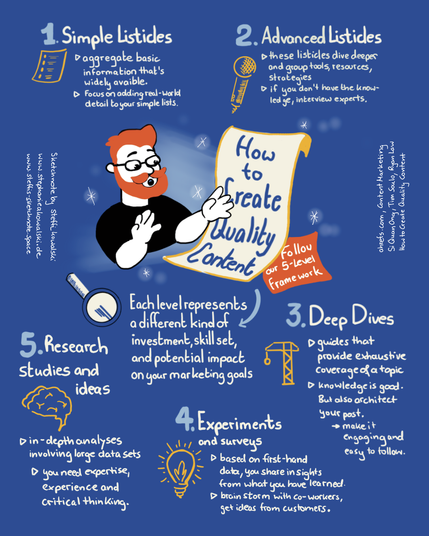 1. Simple Listicles
▷ aggregate basic
information that's
widely avaible.
▷ Focus on adding real-world
detail to your simple lists.
2. Advanced Listicles
▷ these listicles dive deeper
and group tools, resources,
strategies
▷ if you don't have the know-
ledge, interview experts.
How
to
Create
Quality
Content
Follow
our 5-level
framework
Sketchnote by steffi_kowalski
www.stephaniekowalski.de
ahrefs.com, Content Marketing
Si Quan Ong, Tim Soulo, Ryan Law
How to Create Quality Content
Each level represents
a different kind of
investment, skill set,
and potential impact
on your marketing goals
3. Deep Dives
▷ guides that
provide exhaustive
coverage of a topic
▷ knowledge is good.
But also architect
your post.
→ make it
engaging and
easy to follow.
4. Experiments
and surveys
▷ based on first-hand
data, you share insights
from what you have learned.
▷ brain storm with co-workers,
get ideas from customers.
5. Research
studies and
ideas
▷ in-depth analyses
involving large data sets
▷ you need expertise,
experience and
critical thinking.